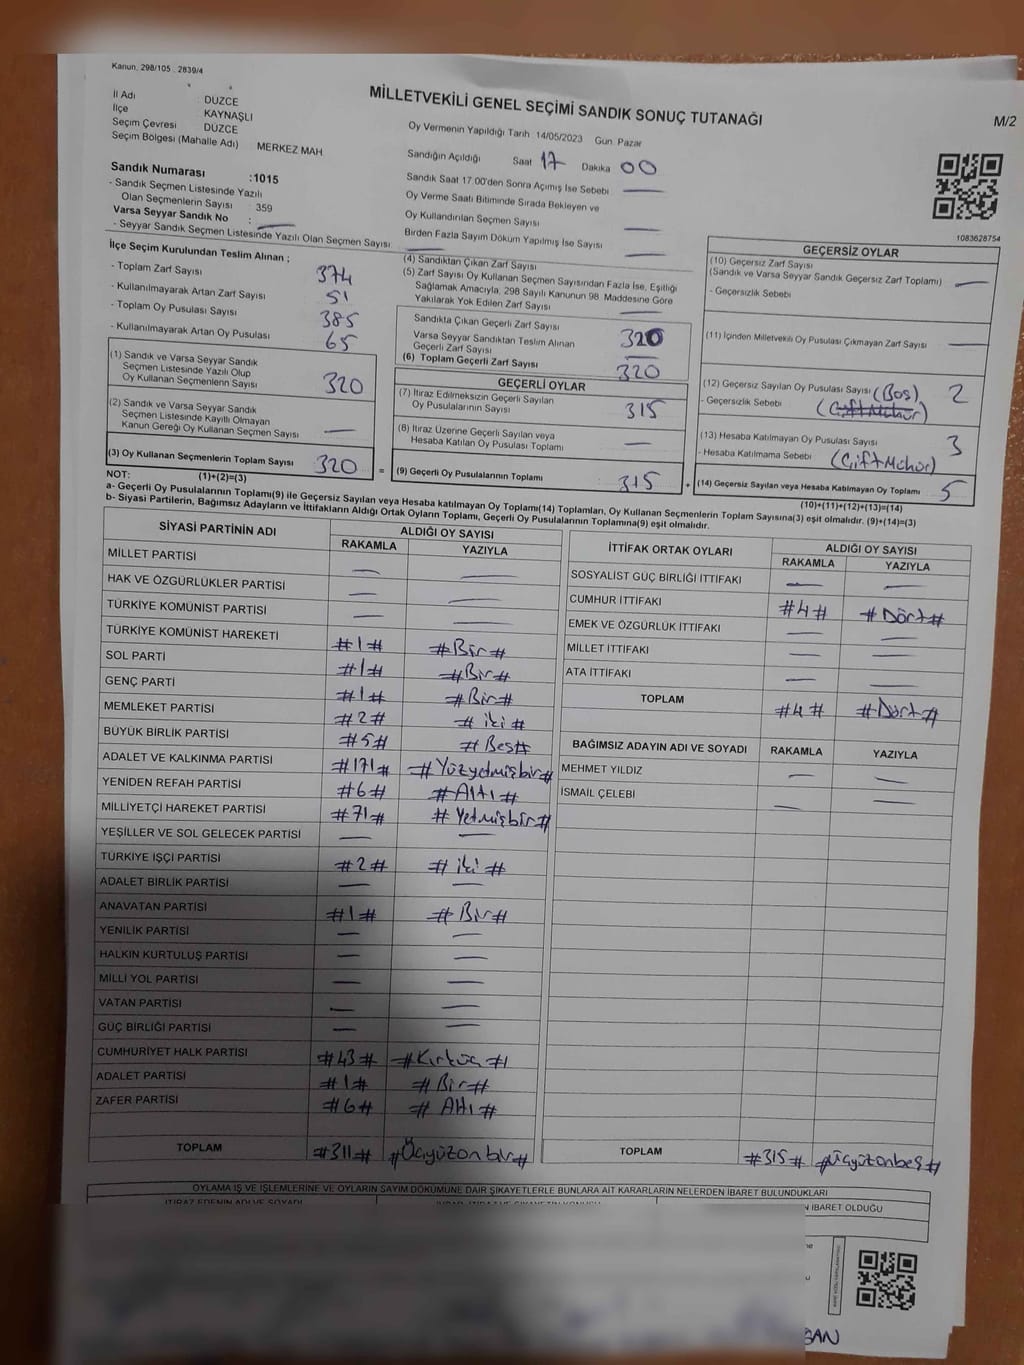 Kanun, 298/105 2839/4
MİLLETVEKİLİ GENEL SEÇİMİ SANDIK SONUÇ TUTANAĞI
M/2
İl Adı : DÜZCE
İlçe KAYNAŞLI
Seçim Çevresi DÜZCE
Seçim Bölgesi (Mahalle Adı) MERKEZ MAH
Oy Vermenin Yapıldığı Tarih 14/05/2023 Gün Pazar
Sandığın Açıldığı Saat 17 Dakika 00
Sandık Saat 17:00'den Sonra Açılmış İse Sebebi —
Oy Verme Saati Bitiminde Sırada Bekleyen ve
Oy Kullandırılan Seçmen Sayısı —
Birden Fazla Sayım Döküm Yapılmış İse Sayısı —
Sandık Numarası :1015
- Sandık Seçmen Listesinde Yazılı
Olan Seçmenlerin Sayısı : 359
Varsa Seyyar Sandık No : —
- Seyyar Sandık Seçmen Listesinde Yazılı Olan Seçmen Sayısı —
1083628754
İlçe Seçim Kurulundan Teslim Alınan ;
- Toplam Zarf Sayısı 374
- Kullanılmayarak Artan Zarf Sayısı 51
- Toplam Oy Pusulası Sayısı 385
- Kullanılmayarak Artan Oy Pusulası 65
(1) Sandık ve Varsa Seyyar Sandık
Seçmen Listesinde Yazılı Olup
Oy Kullanan Seçmenlerin Sayısı 320
(2) Sandık ve Varsa Seyyar Sandık
Seçmen Listesinde Kayıtlı Olmayan
Kanun Gereği Oy Kullanan Seçmen Sayısı —
(3) Oy Kullanan Seçmenlerin Toplam Sayısı 320
(4) Sandıktan Çıkan Zarf Sayısı
(5) Zarf Sayısı Oy Kullanan Seçmen Sayısından Fazla İse, Eşitliği
Sağlamak Amacıyla, 298 Sayılı Kanunun 98. Maddesine Göre
Yakılarak Yok Edilen Zarf Sayısı —
Sandıkta Çıkan Geçerli Zarf Sayısı 320
Varsa Seyyar Sandıktan Teslim Alınan
Geçerli Zarf Sayısı —
(6) Toplam Geçerli Zarf Sayısı 320
GEÇERLİ OYLAR
(7) İtiraz Edilmeksizin Geçerli Sayılan
Oy Pusulalarının Sayısı 315
(8) İtiraz Üzerine Geçerli Sayılan veya
Hesaba Katılan Oy Pusulası Toplamı —
= (9) Geçerli Oy Pusulalarının Toplamı 315 +
GEÇERSİZ OYLAR
(10) Geçersiz Zarf Sayısı
(Sandık ve Varsa Seyyar Sandık Geçersiz Zarf Toplamı) —
- Geçersizlik Sebebi
(11) İçinden Milletvekili Oy Pusulası Çıkmayan Zarf Sayısı —
(12) Geçersiz Sayılan Oy Pusulası Sayısı (Boş) 2
- Geçersizlik Sebebi (Çift Mühür)
(13) Hesaba Katılmayan Oy Pusulası Sayısı 3
- Hesaba Katılmama Sebebi (Çift Mühür)
(14) Geçersiz Sayılan veya Hesaba Katılmayan Oy Toplamı 5
NOT: (1)+(2)=(3)
(10)+(11)+(12)+(13)=(14)
a- Geçerli Oy Pusulalarının Toplamı(9) ile Geçersiz Sayılan veya Hesaba katılmayan Oy Toplamı(14) Toplamları, Oy Kullanan Seçmenlerin Toplam Sayısına(3) eşit olmalıdır. (9)+(14)=(3)
b- Siyasi Partilerin, Bağımsız Adayların ve İttifakların Aldığı Ortak Oyların Toplamı, Geçerli Oy Pusulalarının Toplamına(9) eşit olmalıdır.
SİYASİ PARTİNİN ADI ALDIĞI OY SAYISI
RAKAMLA YAZIYLA
MİLLET PARTİSİ — —
HAK VE ÖZGÜRLÜKLER PARTİSİ — —
TÜRKİYE KOMÜNİST PARTİSİ — —
TÜRKİYE KOMÜNİST HAREKETİ #1# #Bir#
SOL PARTİ #1# #Bir#
GENÇ PARTİ #1# #Bir#
MEMLEKET PARTİSİ #2# #iki#
BÜYÜK BİRLİK PARTİSİ #5# #Beş#
ADALET VE KALKINMA PARTİSİ #171# #Yüzyetmişbir#
YENİDEN REFAH PARTİSİ #6# #Altı#
MİLLİYETÇİ HAREKET PARTİSİ #71# #Yetmişbir#
YEŞİLLER VE SOL GELECEK PARTİSİ — —
TÜRKİYE İŞÇİ PARTİSİ #2# #iki#
ADALET BİRLİK PARTİSİ — —
ANAVATAN PARTİSİ #1# #Bir#
YENİLİK PARTİSİ — —
HALKIN KURTULUŞ PARTİSİ — —
MİLLİ YOL PARTİSİ — —
VATAN PARTİSİ — —
GÜÇ BİRLİĞİ PARTİSİ — —
CUMHURİYET HALK PARTİSİ #43# #Kırküç#
ADALET PARTİSİ #1# #Bir#
ZAFER PARTİSİ #6# #Altı#
TOPLAM #311# #Üçyüzonbir#
İTTİFAK ORTAK OYLARI ALDIĞI OY SAYISI
RAKAMLA YAZIYLA
SOSYALİST GÜÇ BİRLİĞİ İTTİFAKI — —
CUMHUR İTTİFAKI #4# #Dört#
EMEK VE ÖZGÜRLÜK İTTİFAKI — —
MİLLET İTTİFAKI — —
ATA İTTİFAKI — —
TOPLAM #4# #Dört#
BAĞIMSIZ ADAYIN ADI VE SOYADI RAKAMLA YAZIYLA
MEHMET YILDIZ — —
İSMAİL ÇELEBİ — —
TOPLAM #315# #Üçyüzonbeş#
OYLAMA İŞ VE İŞLEMLERİNE VE OYLARIN SAYIM DÖKÜMÜNE DAİR ŞİKAYETLERLE BUNLARA AİT KARARLARIN NELERDEN İBARET BULUNDUKLARI
İTİRAZ EDENİN ADI VE SOYADI
N İBARET OLDUĞU